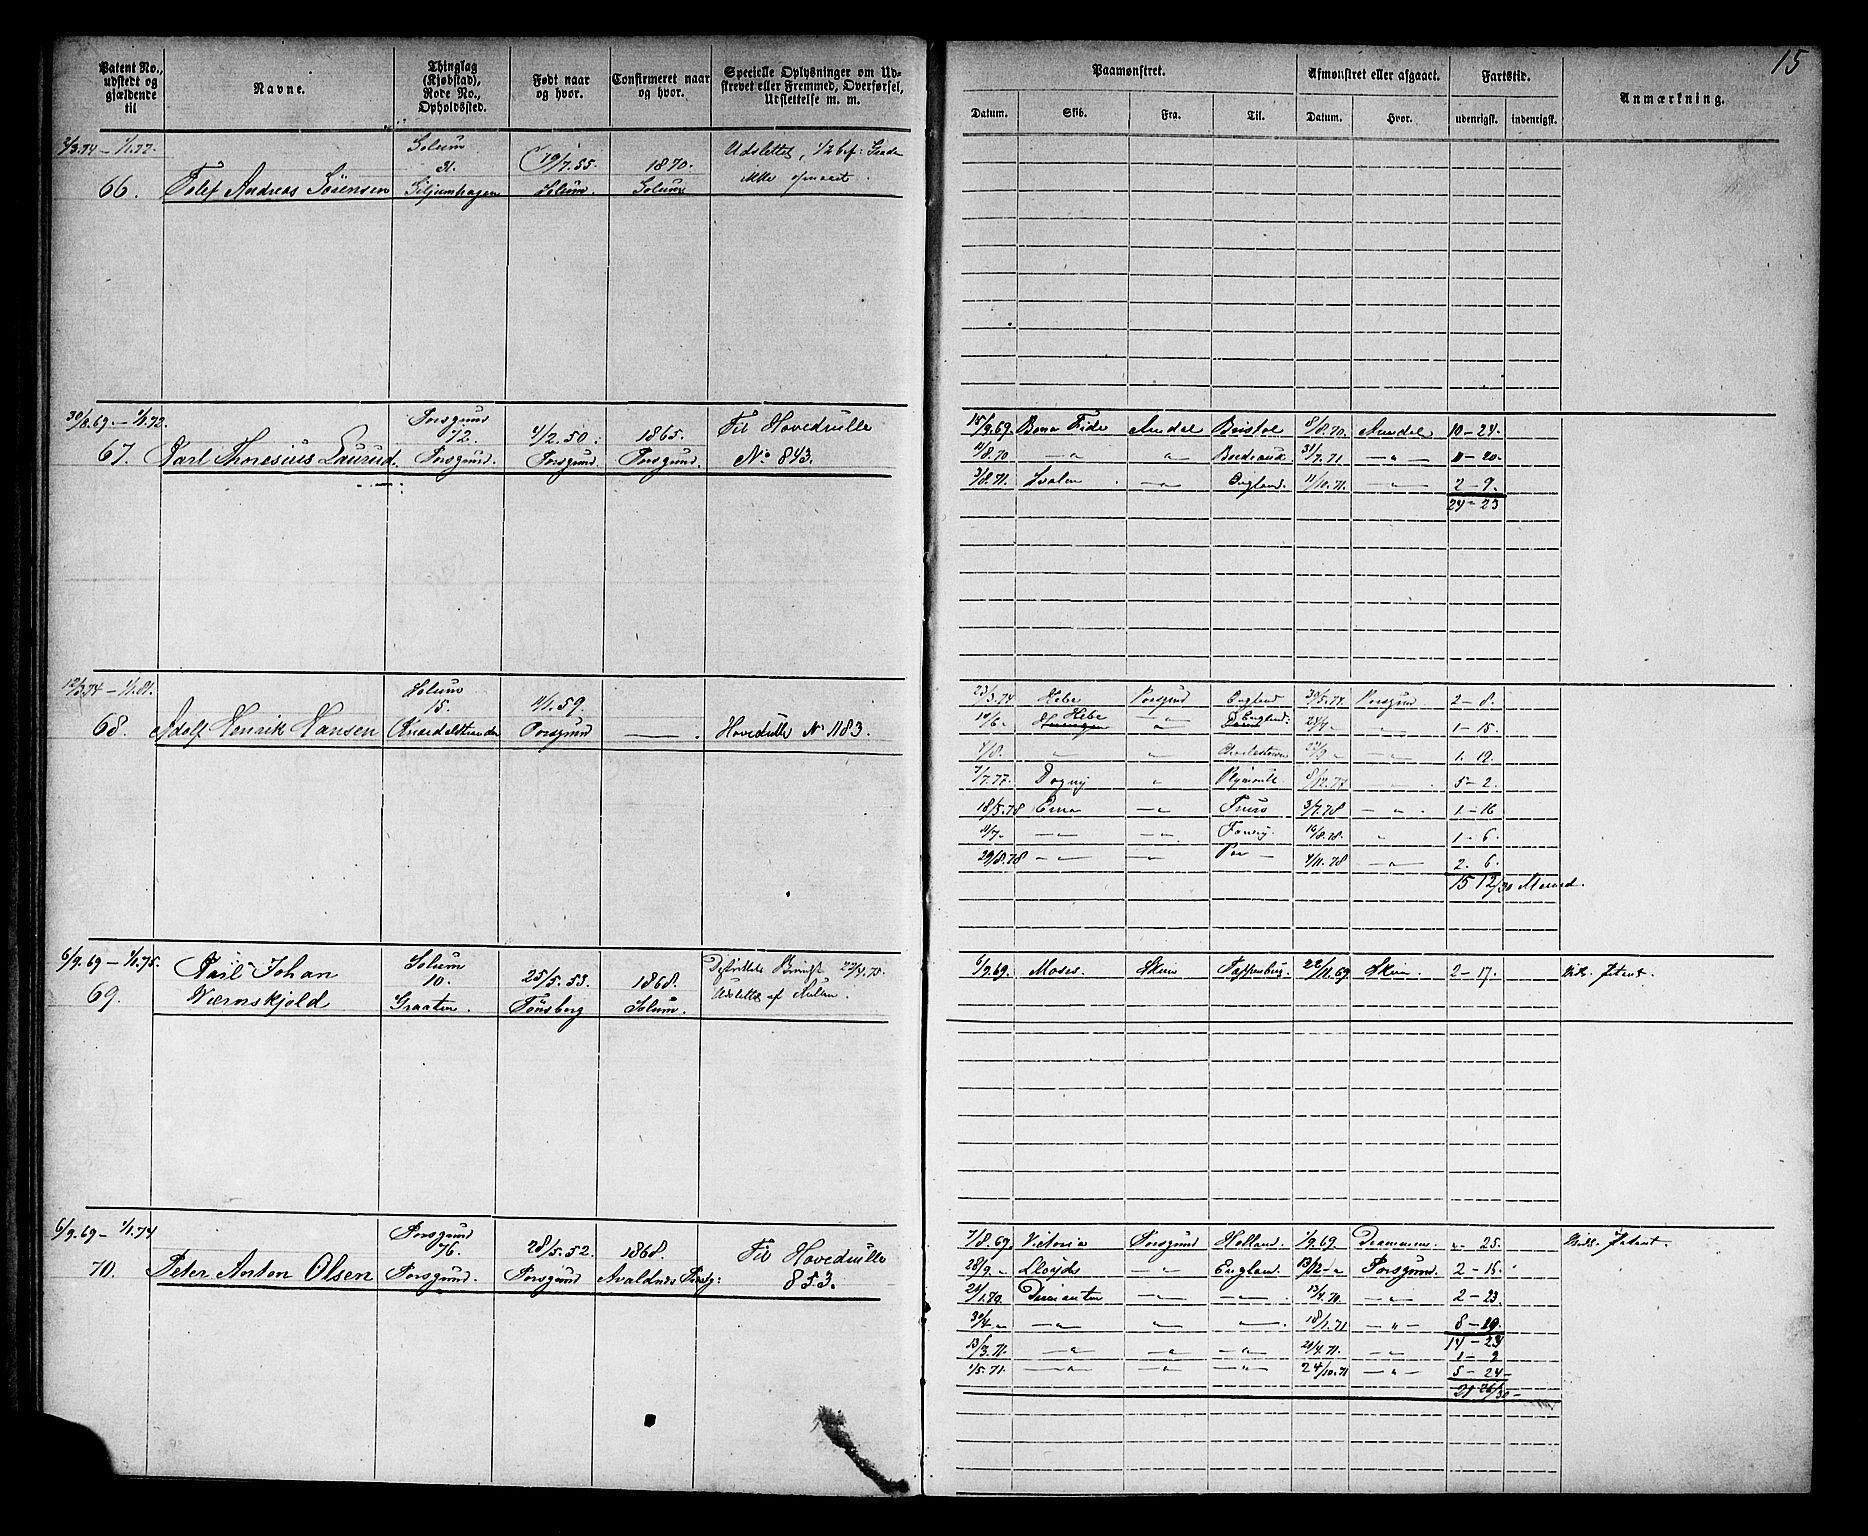 15
Patent No., udstedt og gjældende til
Navne.
Thinglag (Kjøbstad), Rode No., Opholdssted.
Født naar og hvor.
Confirmeret naar og hvor.
Specielle Oplysninger om Udskrevet eller Fremmed, Overførsel, Udslettelse m. m.
Paamønstret.
Afmønstret eller afgaaet.
Fartstid.
Anmærkning.
Datum. Skib. Fra. Til. Datum. Hvor. udenrigsk. indenrigsk.
66. Tolef Andreas Sörensen
Solum 31.
19/7.55 Solum.
1870. Solum
Udslettet,
30/8.69. – 1/1.72.
67. Karl Thoresius Laurud.
Porsgrund 12. Porsgrund.
4/2.50. Porsgrund.
1865. Porsgrund.
Til Hovedrulle No 843.
15/9.69. Bona Fide Arendal Bristol 8/8.70. Arendal 10–24.
11/8.70 –"– " Bordeaux 31/7.71 –"– 11–20.
3/8.71. Svalen –"– England. 11/10.71. –"– 2–9.
24–23
12/3.74 – 1/1.81.
68. Adolf Henrik Hansen
Solum 15. Knardalstranden
4/1.59. Porsgrund
Hovedrulle No 1183.
23/3.74 Hebe Porsgrund England 30/5.74. Porsgrund 2–8.
14/6. Hebe –"– England: 1–15.
1/8. " " Charlestown " 1. 19.
7/7.77. Dagny " Plymouth 8/12.77 " 5–2.
18/5.78 Erna –"– Truro 3/7.78 –"– 1–16
11/7– –"– –"– Fowey. 16/8.78. " 1–6.
29/8.78 –"– –"– 4/11.78 –"– 2. 6.
15 12/30 Maaned.
6/9.69 – 1/1.75.
69. Karl Johan Værnskjold
Solum 10. Graaten.
25/5.53. Tönsberg
1868. Solum.
Udslettet af Rullen.
6/9.69. Moses. Skien 22/11.69 Skien. 2–17. Patent.
6/9.69 – 1/1.74
70. Peter Anton Olsen
Porsgrund 76. Porsgrund.
28/5.52. Porsgrund
1868. Avaldnes
Til Hovedrulle 853.
7/8.69. Victoria Porsgrund Holland. 1/9.69. Drammen. "– 25. Patent.
28/9.– Lloyds –"– England. 13/12–" Porsgrund. 2–15.
21/1.70. Diamanten –"– –"– 13/4.70. " 2–23.
30/4–" –"– " " 18/1.71 –"– 8–19.
14–23
13/3.71. –"– " " 21/4.71. –"– 1–9
1/5.71. –"– " –"– 24/10.71 –"– 5–24–
21 26/30–